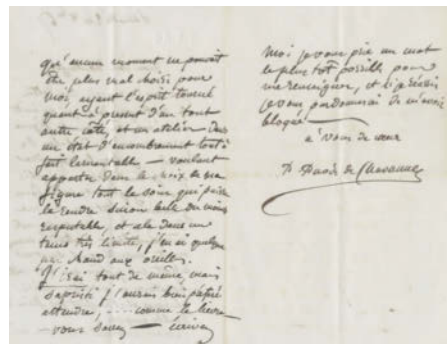 qu'aucun moment ne pouvait
être plus mal choisi pour
moi, ayant l'esprit tourné
quant à présent d'un tout
autre côté, et un atelier dans
un état d'encombrement tout à
fait lamentable — voulant
apporter dans le choix de ma
figure tout le soin qui puisse
la rendre sinon belle du moins
et cela dans un
temps très limité, j'en ai quelque
peu chaud aux oreilles.
J'irai tout de même, mais
sapristi j'aurais bien préféré
attendre, .... comme le lièvre
vous savez —
Moi je vous prie un mot
le plus tôt possible pour
me renseigner, et si je
je vous pardonnerai de m'avoir
bloqué —
à vous de cœur
P. Puvis de Chavannes